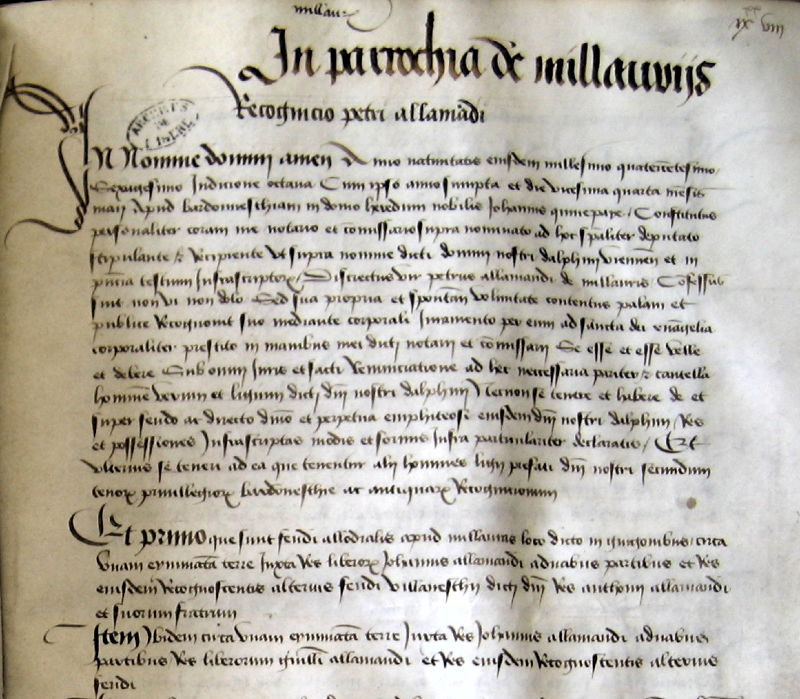 millau
ix viii
In parrochia de millauriis
Recognicio petri allamandi
In Nomine domini amen Anno natiuitatis eiusdem millesimo quatercentesimo
Sexagesimo Indicione octaua Cum ipso anno sumpta et die vicesima quarta mesis
maii Apud bardoneschiam in domo heredum nobilis Johannis
personaliter coram me notario et comissario supra nominato ad hoc spaliter deputato
stipulante & Recipiente Vt supra nomine dicti domini nostri dalphini viennen et in
pntia testium Infrascriptor Discretus vir petrus allamandi de millauris Cofessus
fuit non vi non dolo Sed sua propria et spontan voluntate contentus palam et
publice Recognouit suo mediante corporali Iuramento per eum ad sancta dei euagelia
corporaliter prestito in manibus mei dicti notarii et comissarii Se esse et esse velle
et debere Sub omni Iuris et facti Renunciatione ad hec necessaria pariter & cautella
homine verum et ligium dicti dni nostri dalphini Necnon se tenere et habere de et
super feudo ac directo dnio et perpetua emphiteosi eiusdem dni nostri dalphini Res
et possessiones Infrascriptas modis et formis Infra particulariter declaratis Et
vlterius se teneri ad ea que tenentur alii homines ligii prefati dni nostri secundum
tenor priuillegior bardonesthie ac antiquar Recognicionum
Et primo que sunt feudi allodialis apud millauris loco dicto in circa
vnam eyminata terre Iuxta Res liberor Johannis allamandi aduabus partibus et Res
eiusdem Recognoscentis alterius feudi villanesthii dicti dni Res anthonii allamandi
et suorum fratrum
Item Ibidem circa vnam eyminata terre Iuxta Res Johannis allamandi aduabus
partibus Res liberorum allamandi et Res eiusdem Recognoscentis alterius
feudi